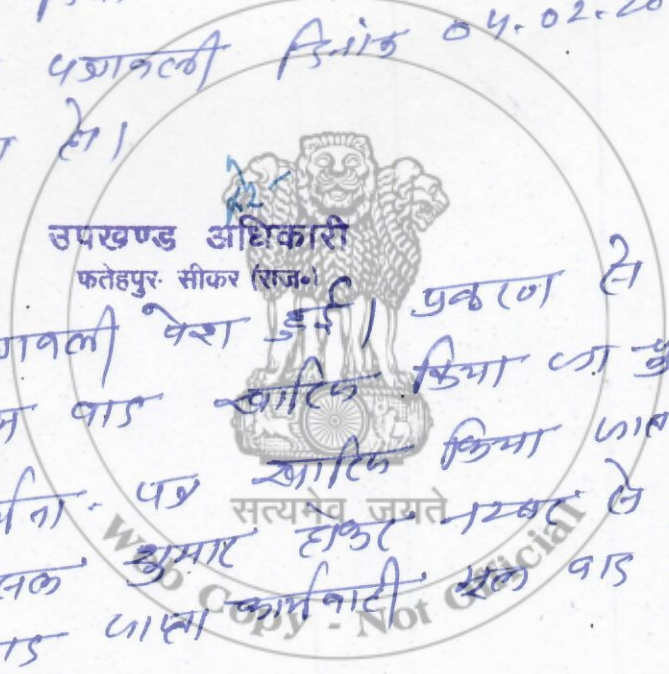 पत्रावली दिनांक 04.02.20
है।
उपखण्ड अधिकारी
फतेहपुर सीकर (राज०)
वली पेश हुई। प्रकरण से
वाद खारिज किया जा
पत्र खारिज किया जात
सत्यमेव जयते
शुमार होकर नम्बर से
कार्यवाही मूल वाद
Web Copy - Not Official